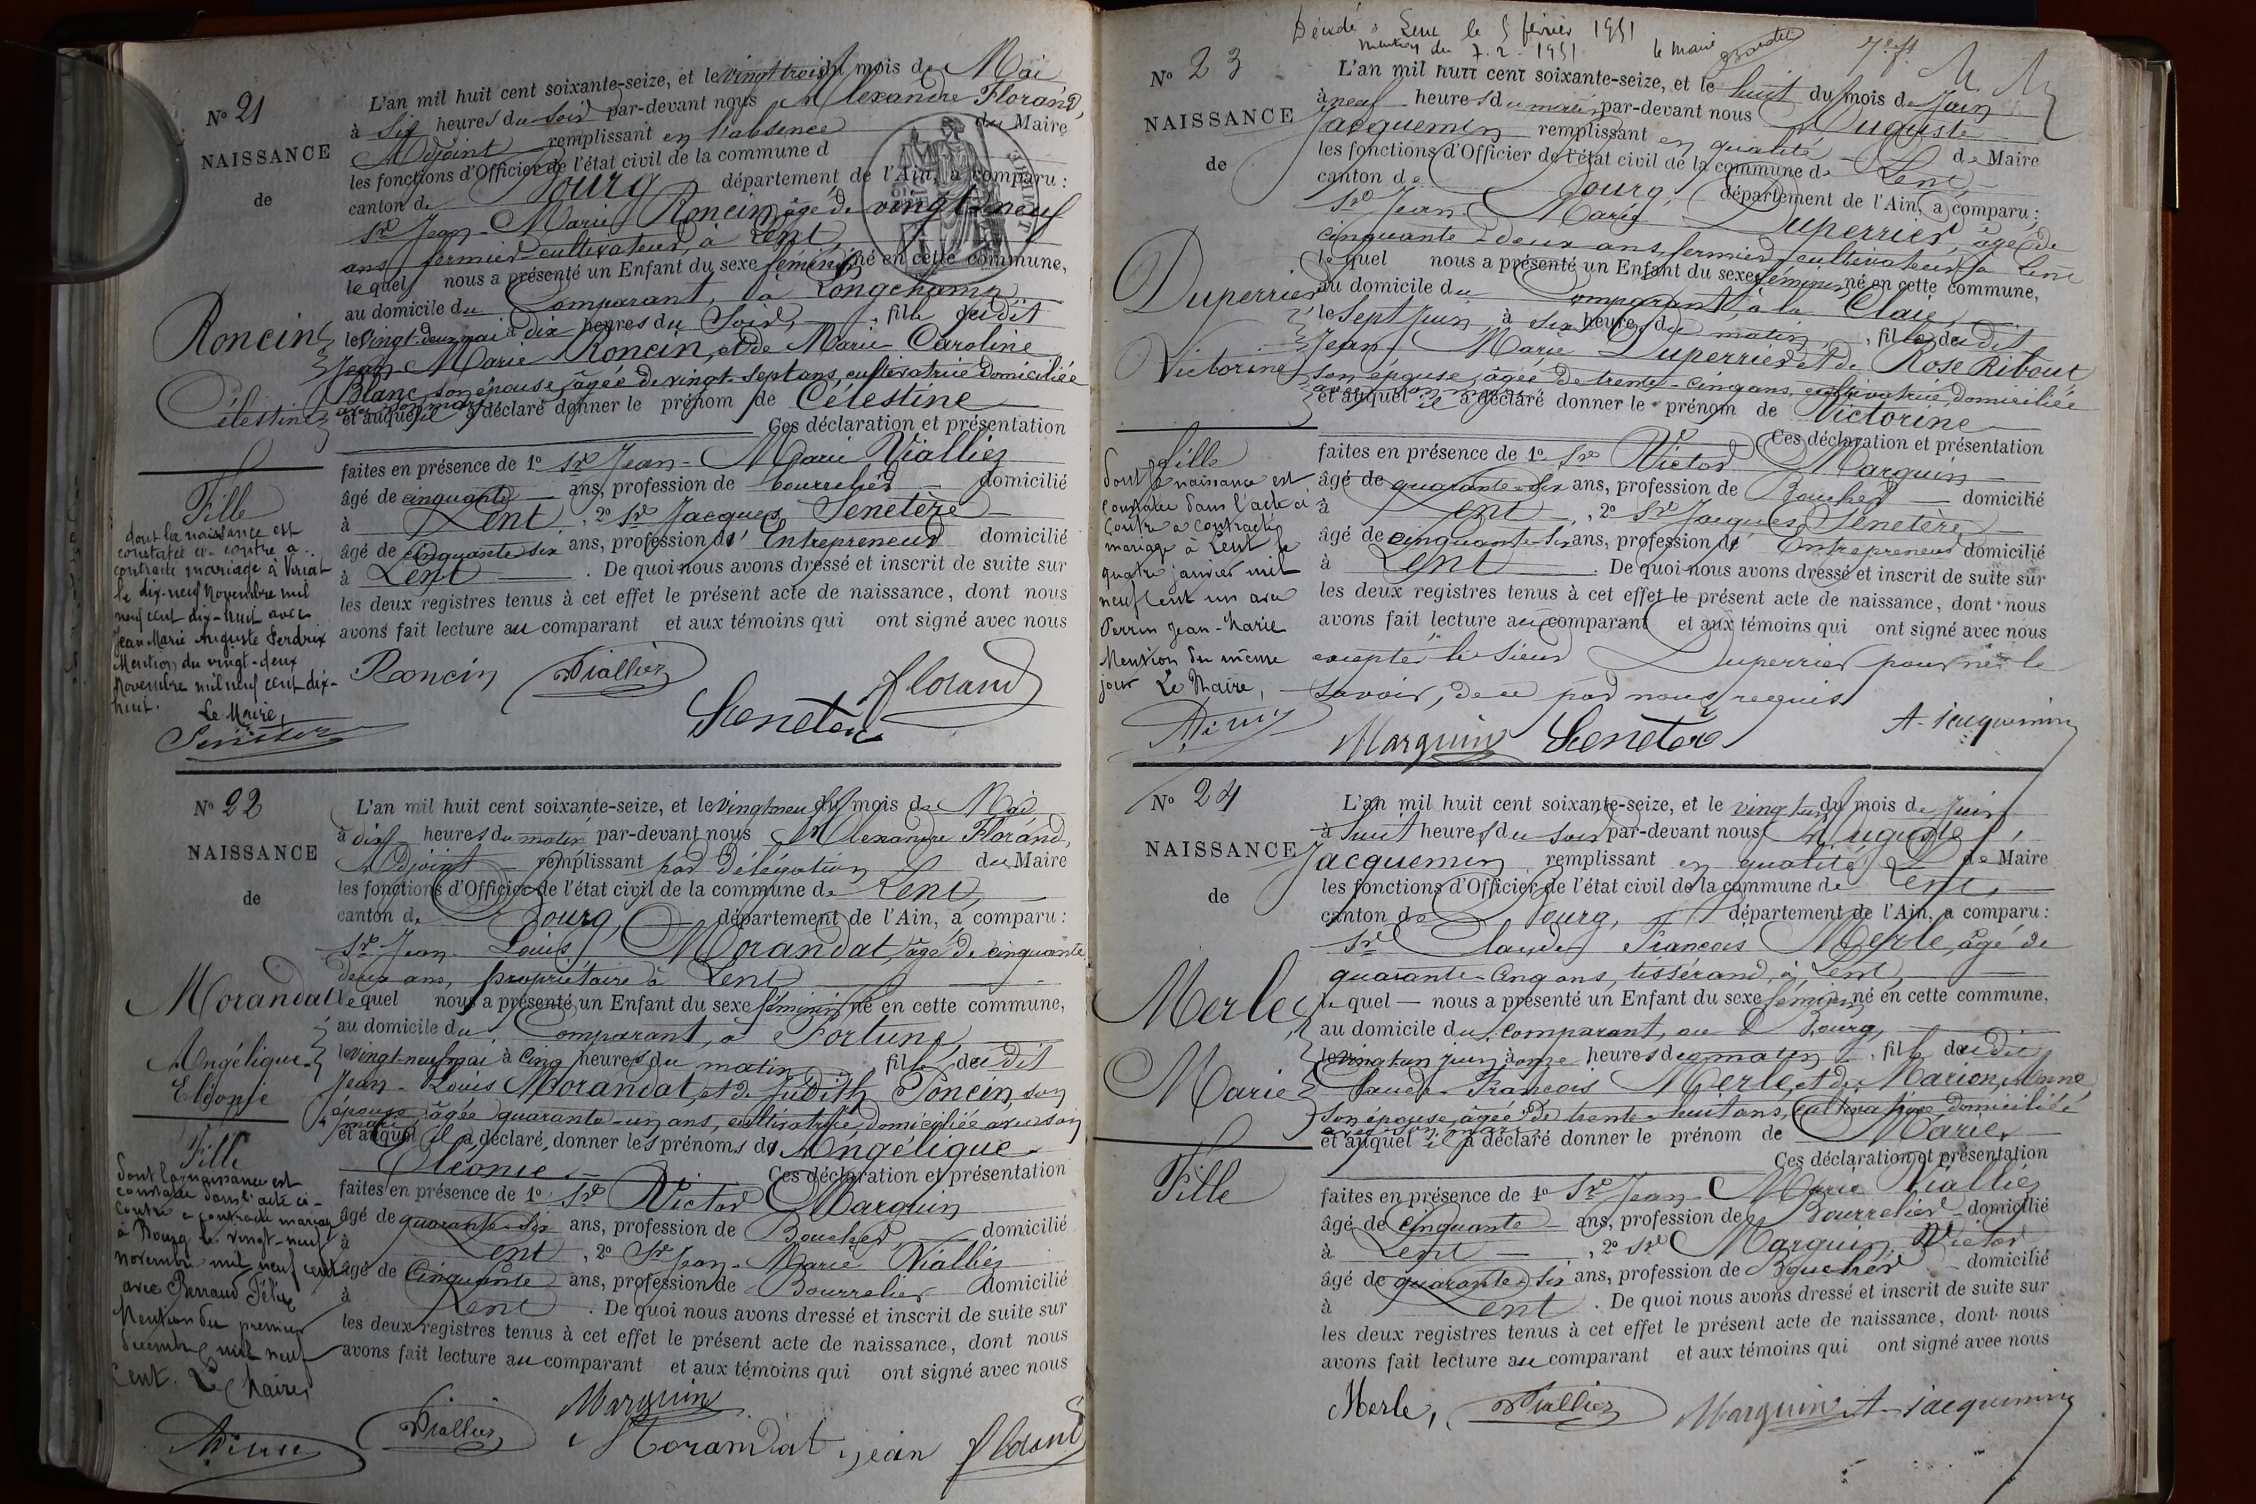 N° 21
NAISSANCE
de
Roncin
Célestine
Fille
dont la naissance est
constatée ci-contre a
contracté mariage à Viriat
le dix-neuf Novembre mil
neuf cent dix-huit avec
Jean Marie Auguste Perdrix
Mention du vingt-deux
Novembre mil neuf cent dix-
huit.
Le Maire,
L'an mil huit cent soixante-seize, et le vingt trois du mois de Mai
à six heures du soir par-devant nous Alexandre Florand,
Adjoint remplissant en l'absence du Maire
les fonctions d'Officier de l'état civil de la commune d
canton de Bourg département de l'Ain, a comparu :
Sr Jean-Marie Roncin, âgé de vingt-neuf
ans, fermier-cultivateur, à Lent,
lequel nous a présenté un Enfant du sexe féminin né en cette commune,
au domicile du Comparant, à Longchamp
le vingt-deux mai à dix heures du Soir, , fille du dit
Jean-Marie Roncin, et de Marie Caroline
Blanc, son épouse, âgée de vingt-sept ans, cultivatrice domiciliée
avec son mari
et auquel il a déclaré donner le prénom de Célestine
Ces déclaration et présentation
faites en présence de 1° Sr Jean-Marie Viallier
âgé de cinquante ans, profession de bourrelier domicilié
à Lent , 2° Sr Jacques Senetère
âgé de cinquante six ans, profession d' Entrepreneur domicilié
à Lent . De quoi nous avons dressé et inscrit de suite sur
les deux registres tenus à cet effet le présent acte de naissance, dont nous
avons fait lecture au comparant et aux témoins qui ont signé avec nous
Roncin Viallier Senetère florand
N° 22
NAISSANCE
de
Morandat
Angélique
Eléonie
Fille
dont la naissance est
constatée dans l'acte ci-
contre a contracté mariage
à Bourg le vingt-neuf
novembre mil neuf cent
avec Berraud Félix
Mention du premier
décembre mil neuf
cent. Le Maire,
L'an mil huit cent soixante-seize, et le vingt neuf du mois de Mai
à dix heures du matin par-devant nous Alexandre Florand,
Adjoint remplissant par délégation du Maire
les fonctions d'Officier de l'état civil de la commune de Lent,
canton de Bourg, département de l'Ain, a comparu :
Sr Jean-Louis Morandat, âgé de cinquante
deux ans, propriétaire à Lent
lequel nous a présenté un Enfant du sexe féminin né en cette commune,
au domicile du Comparant, à Fortune,
le vingt-neuf mai à cinq heures du matin fille du dit
Jean-Louis Morandat, et de Judith Poncin, son
épouse, âgée quarante-un ans, cultivatrice, domiciliée avec son
mari
et auquel il a déclaré donner les prénoms de Angélique
Eléonie Ces déclaration et présentation
faites en présence de 1° Sr Victor Marguin
âgé de quarante-six ans, profession de Boucher domicilié
à Lent , 2° Sr Jean-Marie Viallier
âgé de Cinquante ans, profession de Bourrelier domicilié
à Lent . De quoi nous avons dressé et inscrit de suite sur
les deux registres tenus à cet effet le présent acte de naissance, dont nous
avons fait lecture au comparant et aux témoins qui ont signé avec nous
Viallier Marguin
Morandat jean florand
Décédé à Lent le 5 février 1951
mention du 7-2-1951 le maire
N° 23
NAISSANCE
de
Duperrier
Victorine
Fille
dont la naissance est
constatée dans l'acte ci
contre a contracté
mariage à Lent le
quatre janvier mil
neuf cent un avec
Perrin Jean-Marie
Mention du même
jour Le Maire,
L'an mil huit cent soixante-seize, et le huit du mois de Juin
à neuf heures du matin par-devant nous Auguste
Jacquemin remplissant en qualité de Maire
les fonctions d'Officier de l'état civil de la commune de Lent,
canton de Bourg, département de l'Ain, a comparu :
Sr Jean-Marie Duperrier, âgé de
cinquante-deux ans, fermier cultivateur à Lent
lequel nous a présenté un Enfant du sexe féminin né en cette commune,
au domicile du Comparant, à la Claie,
le Sept Juin à six heures du matin , fille du dit
Jean Marie Duperrier et de Rose Ribout
son épouse, âgée de trente-cinq ans, cultivatrice domiciliée
avec son mari
et auquel il a déclaré donner le prénom de Victorine
Ces déclaration et présentation
faites en présence de 1° Sr Victor Marguin
âgé de quarante-six ans, profession de Boucher domicilié
à Lent , 2° Sr Jacques Senetère,
âgé de cinquante-six ans, profession d' Entrepreneur domicilié
à Lent . De quoi nous avons dressé et inscrit de suite sur
les deux registres tenus à cet effet le présent acte de naissance, dont nous
avons fait lecture au comparant et aux témoins qui ont signé avec nous
excepté le Sieur Duperrier pour ne le
savoir, de ce par nous requis
Marguin Senetère A. jacquemin
N° 24
NAISSANCE
de
Merle
Marie
Fille
L'an mil huit cent soixante-seize, et le vingt un du mois de Juin
à huit heures du soir par-devant nous Auguste
Jacquemin remplissant en qualité de Maire
les fonctions d'Officier de l'état civil de la commune de Lent,
canton de Bourg, département de l'Ain, a comparu :
Sr Claude François Merle, âgé de
quarante-cinq ans, tisserand, à Lent,
lequel nous a présenté un Enfant du sexe féminin né en cette commune,
au domicile du comparant, au Bourg,
le vingt un juin à onze heures du matin , fille du dit
Claude-François Merle, et de Marion, Anne,
son épouse, âgée de trente-huit ans, cultivatrice, domiciliée
avec son mari
et auquel il a déclaré donner le prénom de Marie,
Ces déclaration et présentation
faites en présence de 1° Sr Jean-Marie Viallier
âgé de cinquante ans, profession de Bourrelier domicilié
à Lent , 2° Sr Marguin Victor
âgé de quarante-six ans, profession de Boucher domicilié
à Lent . De quoi nous avons dressé et inscrit de suite sur
les deux registres tenus à cet effet le présent acte de naissance, dont nous
avons fait lecture au comparant et aux témoins qui ont signé avec nous
Merle, Viallier Marguin A. jacquemin